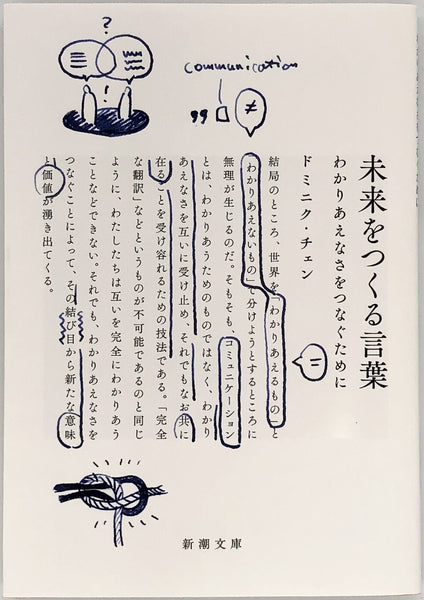 ?
!
communication
”
≠
=
未来をつくる言葉
わかりあえなさをつなぐために
ドミニク・チェン
結局のところ、世界を「わかりあえるもの」と
「わかりあえないもの」で分けようとするところに
無理が生じるのだ。そもそも、コミュニケーション
とは、わかりあうためのものではなく、わかり
あえなさを互いに受け止め、それでもなお共に
在ることを受け容れるための技法である。「完全
な翻訳」などというものが不可能であるのと同じ
ように、わたしたちは互いを完全にわかりあう
ことなどできない。それでも、わかりあえなさを
つなぐことによって、その結び目から新たな意味
と価値が湧き出てくる。
新潮文庫